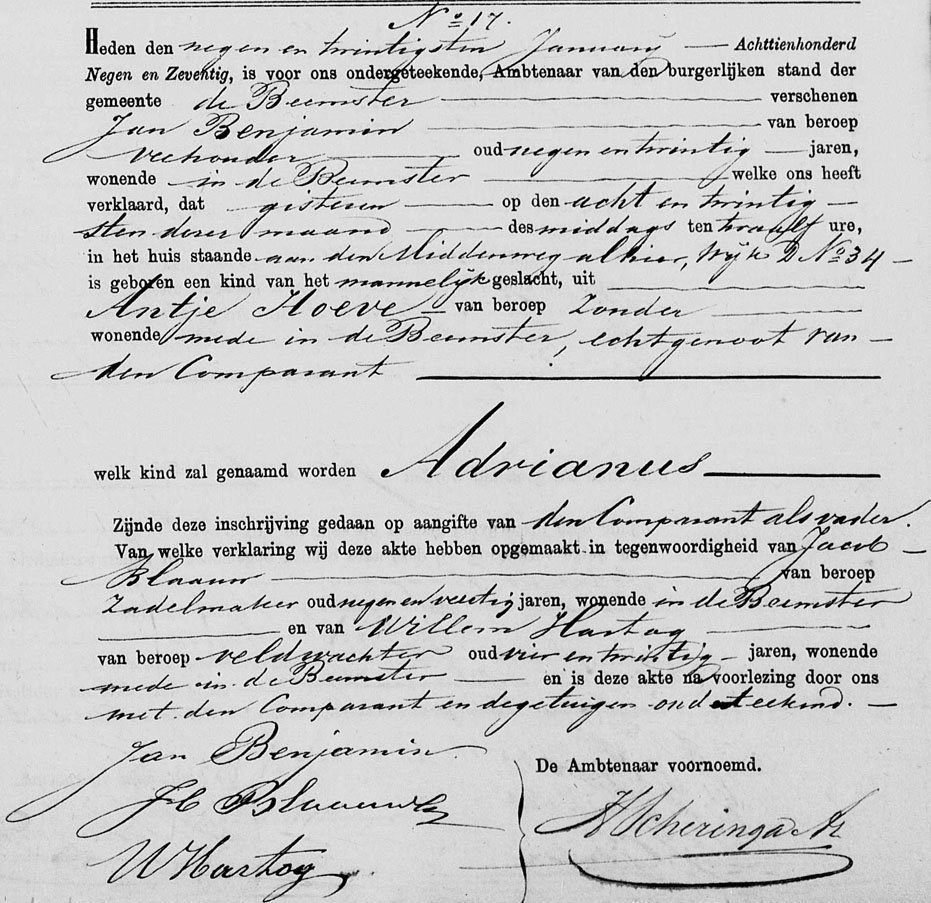 No 17.
Heden den negen en twintigsten January — Achttienhonderd
Negen en Zeventig, is voor ons ondergeteekende, Ambtenaar van den burgerlijken stand der
gemeente de Beemster — verschenen
Jan Benjamin — van beroep
veehouder — oud negen en twintig — jaren,
wonende in de Beemster — welke ons heeft
verklaard, dat gisteren — op den acht en twintig —
sten dezer maand — des middags ten twaalf ure,
in het huis staande aan den Middenweg alhier, Wijk D No 34 —
is geboren een kind van het mannelijk geslacht, uit
Antje Hoeve — van beroep Zonder —
wonende mede in de Beemster, echtgenoot van —
den Comparant
welk kind zal genaamd worden Adrianus
Zijnde deze inschrijving gedaan op aangifte van den Comparant als vader.
Van welke verklaring wij deze akte hebben opgemaakt in tegenwoordigheid van Jacob —
Blaauw — van beroep
Zadelmaker oud negen en veertig jaren, wonende in de Beemster
— en van Willem Hartog —
van beroep veldwachter oud vier en twintig — jaren, wonende
mede in de Beemster — en is deze akte na voorlezing door ons
met den Comparant en de getuigen onderteekend. —
Jan Benjamin
De Ambtenaar voornoemd.
Jb Blaauw
Scheringa
W Hartog